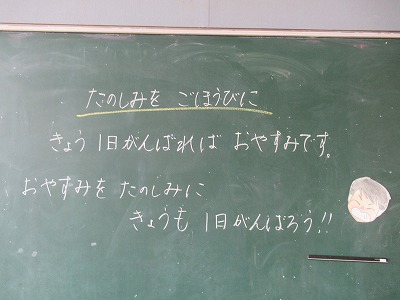 たのしみを ごほうびに
きょう1日がんばれば おやすみです。
おやすみを たのしみに
きょうも 1日がんばろう!!